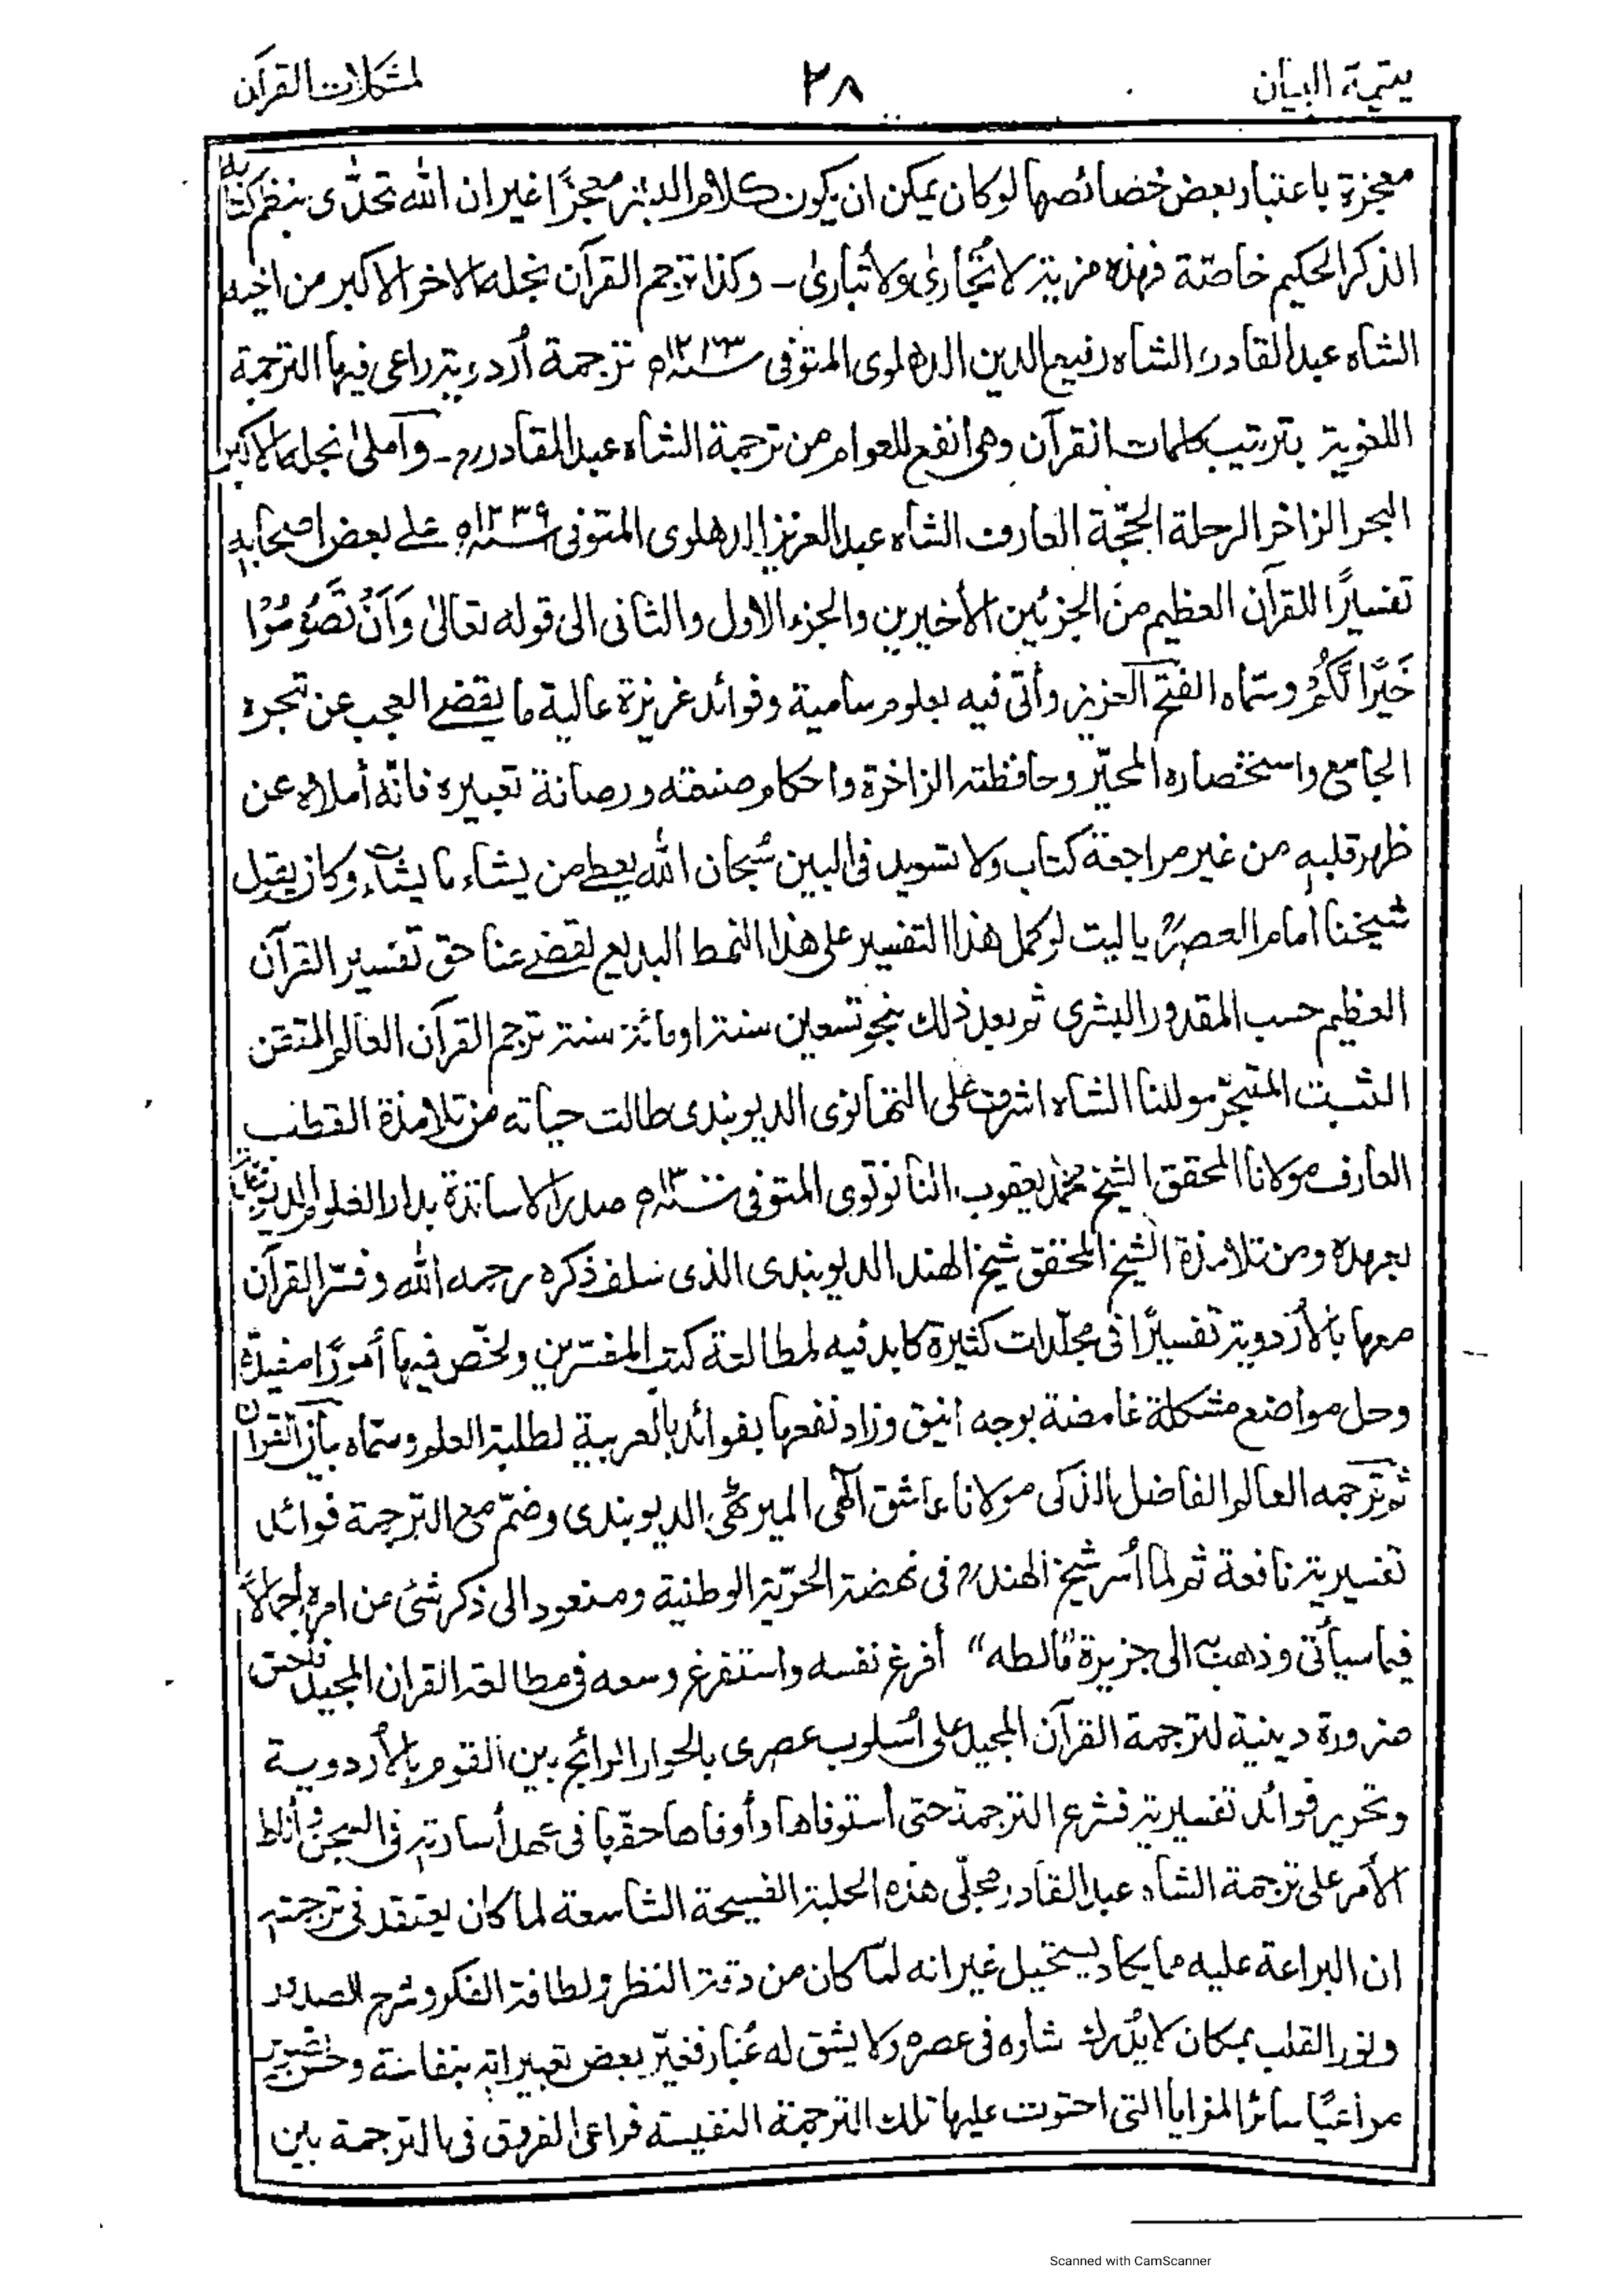 يتيمة البيان
٢٨
لمشكلات القرآن
معجزة باعتبار بعض خصائصها لو كان يمكن ان يكون كلام البشر معجزًا غير ان الله تحدّى بنظم كتابه
الذكر الحكيم خاصّة فهذه مزية لا تُجارىٰ ولا تُبارىٰ ـ وكذا ترجم القرآن نجله الاخر الاكبر من اخيه
الشاه عبد القادرؒ الشاه رفيع الدين الدهلوى المتوفى سنة ١٢٣٣ھ ترجمة أردوية راعى فيها الترجمة
اللغوية بترتيب كلمات القرآن وهى انفع للعوام من ترجمة الشاه عبد القادررح ـ وأملىٰ نجله الاكبر
البحر الزاخر الرحلة الحجّة العارف الشاه عبد العزيز الدهلوى المتوفى سنة ١٢٣٩ھ على بعض اصحابه
تفسيرًا للقرآن العظيم من الجزئين الأخيرين والجزء الاول والثانى الى قوله تعالىٰ وَاَنْ تَصُوْمُوْا
خَيْرٌ لَّكُمْ وسمّاه الفتح العزيز وأتى فيه بعلوم سامية وفوائد غزيرة عالية ما يقضى العجب عن تبحره
الجامع واستحضاره المحيّر وحافظته الزاخرة واحكام صنيعته ورصانة تعبيره فانّه أملاه عن
ظهر قلبه من غير مراجعة كتاب ولا تسويد فى البين سُبحان الله يعطى من يشاء ما يشاء وكان يقول
شيخنا امام العصرؒ يا ليت لو كمل هذا التفسير على هذا النمط البديع لقضى عنا حق تفسير القرآن
العظيم حسب المقدور البشرى ثم بعد ذلك بنحو تسعين سنة او مائة سنة ترجم القرآن العالم المتقن
الثبت المتبحّر مولٰنا الشاه اشرف على التهانوى الديوبندى طالت حياته من تلامذة القطب
العارف مولانا المحقق الشيخ محمد يعقوب النانوتوى المتوفى سنة ١٣٠٠ھ صدر الاساتذة بدار العلوم الديوبندية
بعهده ومن تلامذة الشيخ المحقق شيخ الهند الديوبندى الذى سلف ذكره رحمه الله وفسّر القرآن
معها بالأردوية تفسيرًا فى مجلّدات كثيرة كابد فيه لمطالعة كتب المفسّرين ولخّص فيها أمورًا مفيدة
وحل مواضع مشكلة غامضة بوجه انيق وزاد نفعها بفوائد بالعربية لطلبة العلم وسمّاه بيان القرآن
ثم ترجمه العالم الفاضل الذكى مولانا عاشق آلٰهى الميرٹهى الديوبندى وضمّ مع الترجمة فوائد
تفسيرية نافعة ثم لما أُسر شيخ الهندؒ فى نهضة الحرّية الوطنية وسنعود الى ذكر شئ من امره اجمالاً
فيما سيأتى وذهب الى جزيرة "مالطه" أفرغ نفسه واستفرغ وسعه فى مطالعة القران المجيد فلحق
ضرورة دينية لترجمة القرآن المجيد على أُسلوب عصرى بالحوار الرائج بين القوم بالأردوية
وتحرير فوائد تفسيرية فشرع الترجمة حتى استوفاها وأوفاها حقّها فى عهد أسارته فى السجن وأناط
الأمر على ترجمة الشاه عبد القادر مجلّى هذه الحلبة الفسيحة الشاسعة لما كان يعتقد فى ترجمته
ان البراعة عليه مما يكاد يستحيل غير انه لما كان من دقة النظر ولطافة الفكر وشرح الصدر
ونور القلب بمكان لا يُدرك شأوه فى عصره ولا يشق له غُبار فغيّر بعض تعبيراته بنفاسة وحسن
مراعيًا سائر المزايا التى احتوت عليها تلك الترجمة النفيسة فراعى الفروق فى الترجمة بين
Scanned with CamScanner